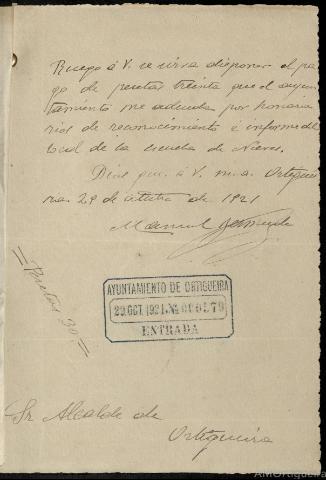 Ruego á V. se sirva disponer el pa-
go de pesetas treinta que el ayun-
tamiento me adeuda por honora-
rios de reconocimiento é informe del
local de la escuela de Nieves.
Dios gue. á V. m. a. Ortiguei
ra 29 de octubre de 1921
Manuel
=Pesetas 30=
AYUNTAMIENTO DE ORTIGUEIRA
29 OCT. 1921 No 000579
ENTRADA
Sr Alcalde de
Ortigueira
AMOrtigueira